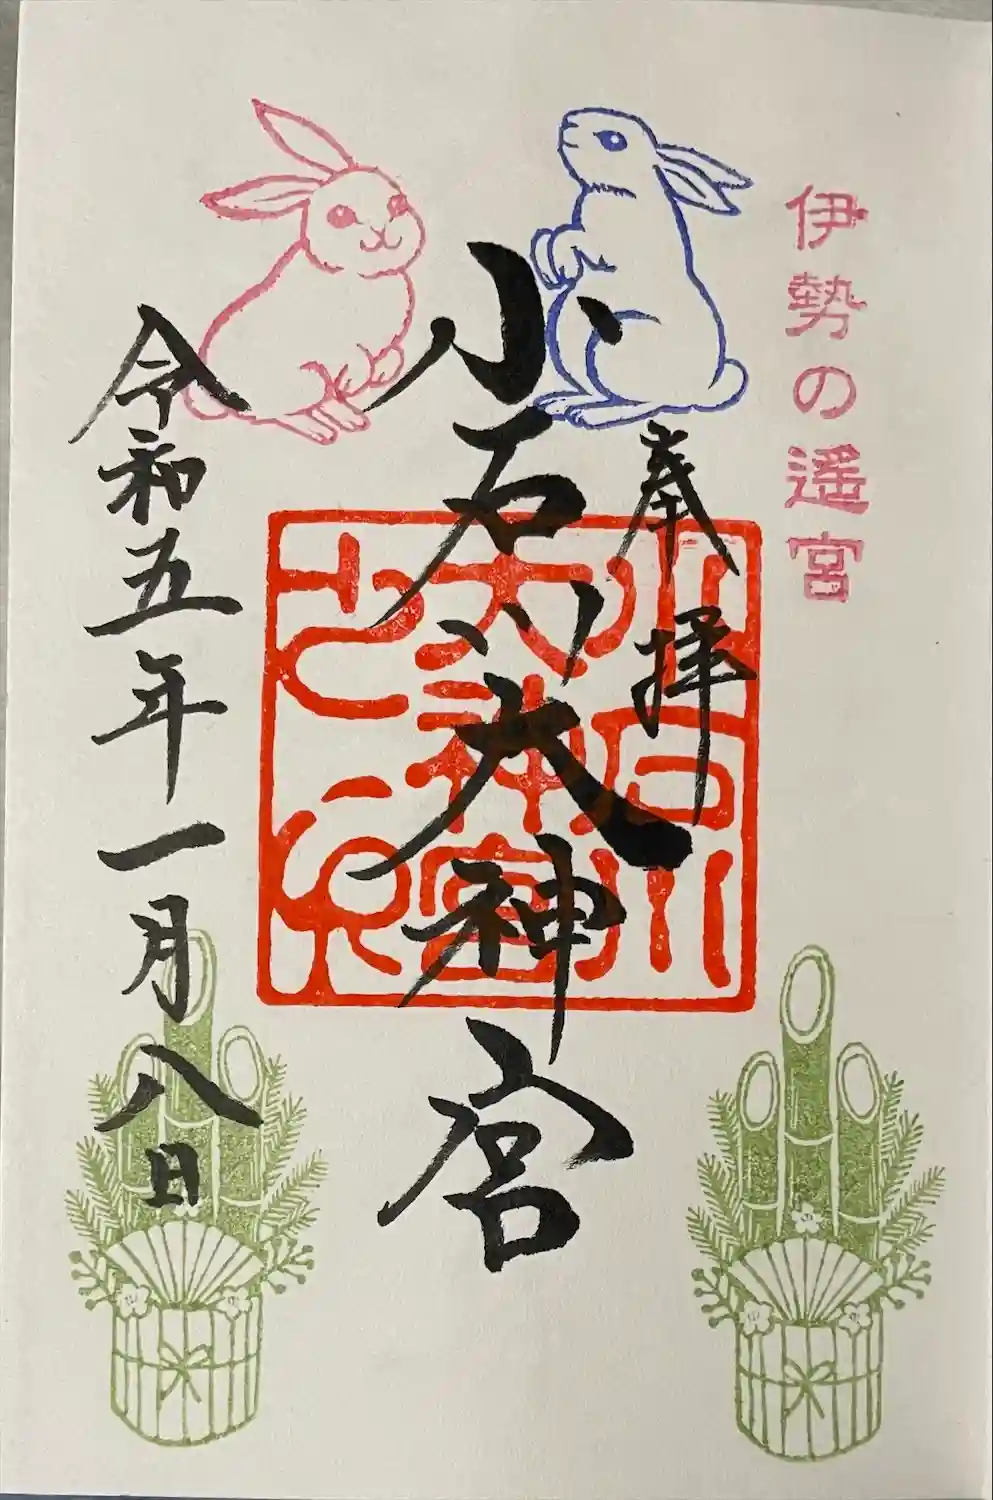 伊勢の遙宮
奉拝
小石川大神宮
小石川
大神宮
之印
令和五年一月八日